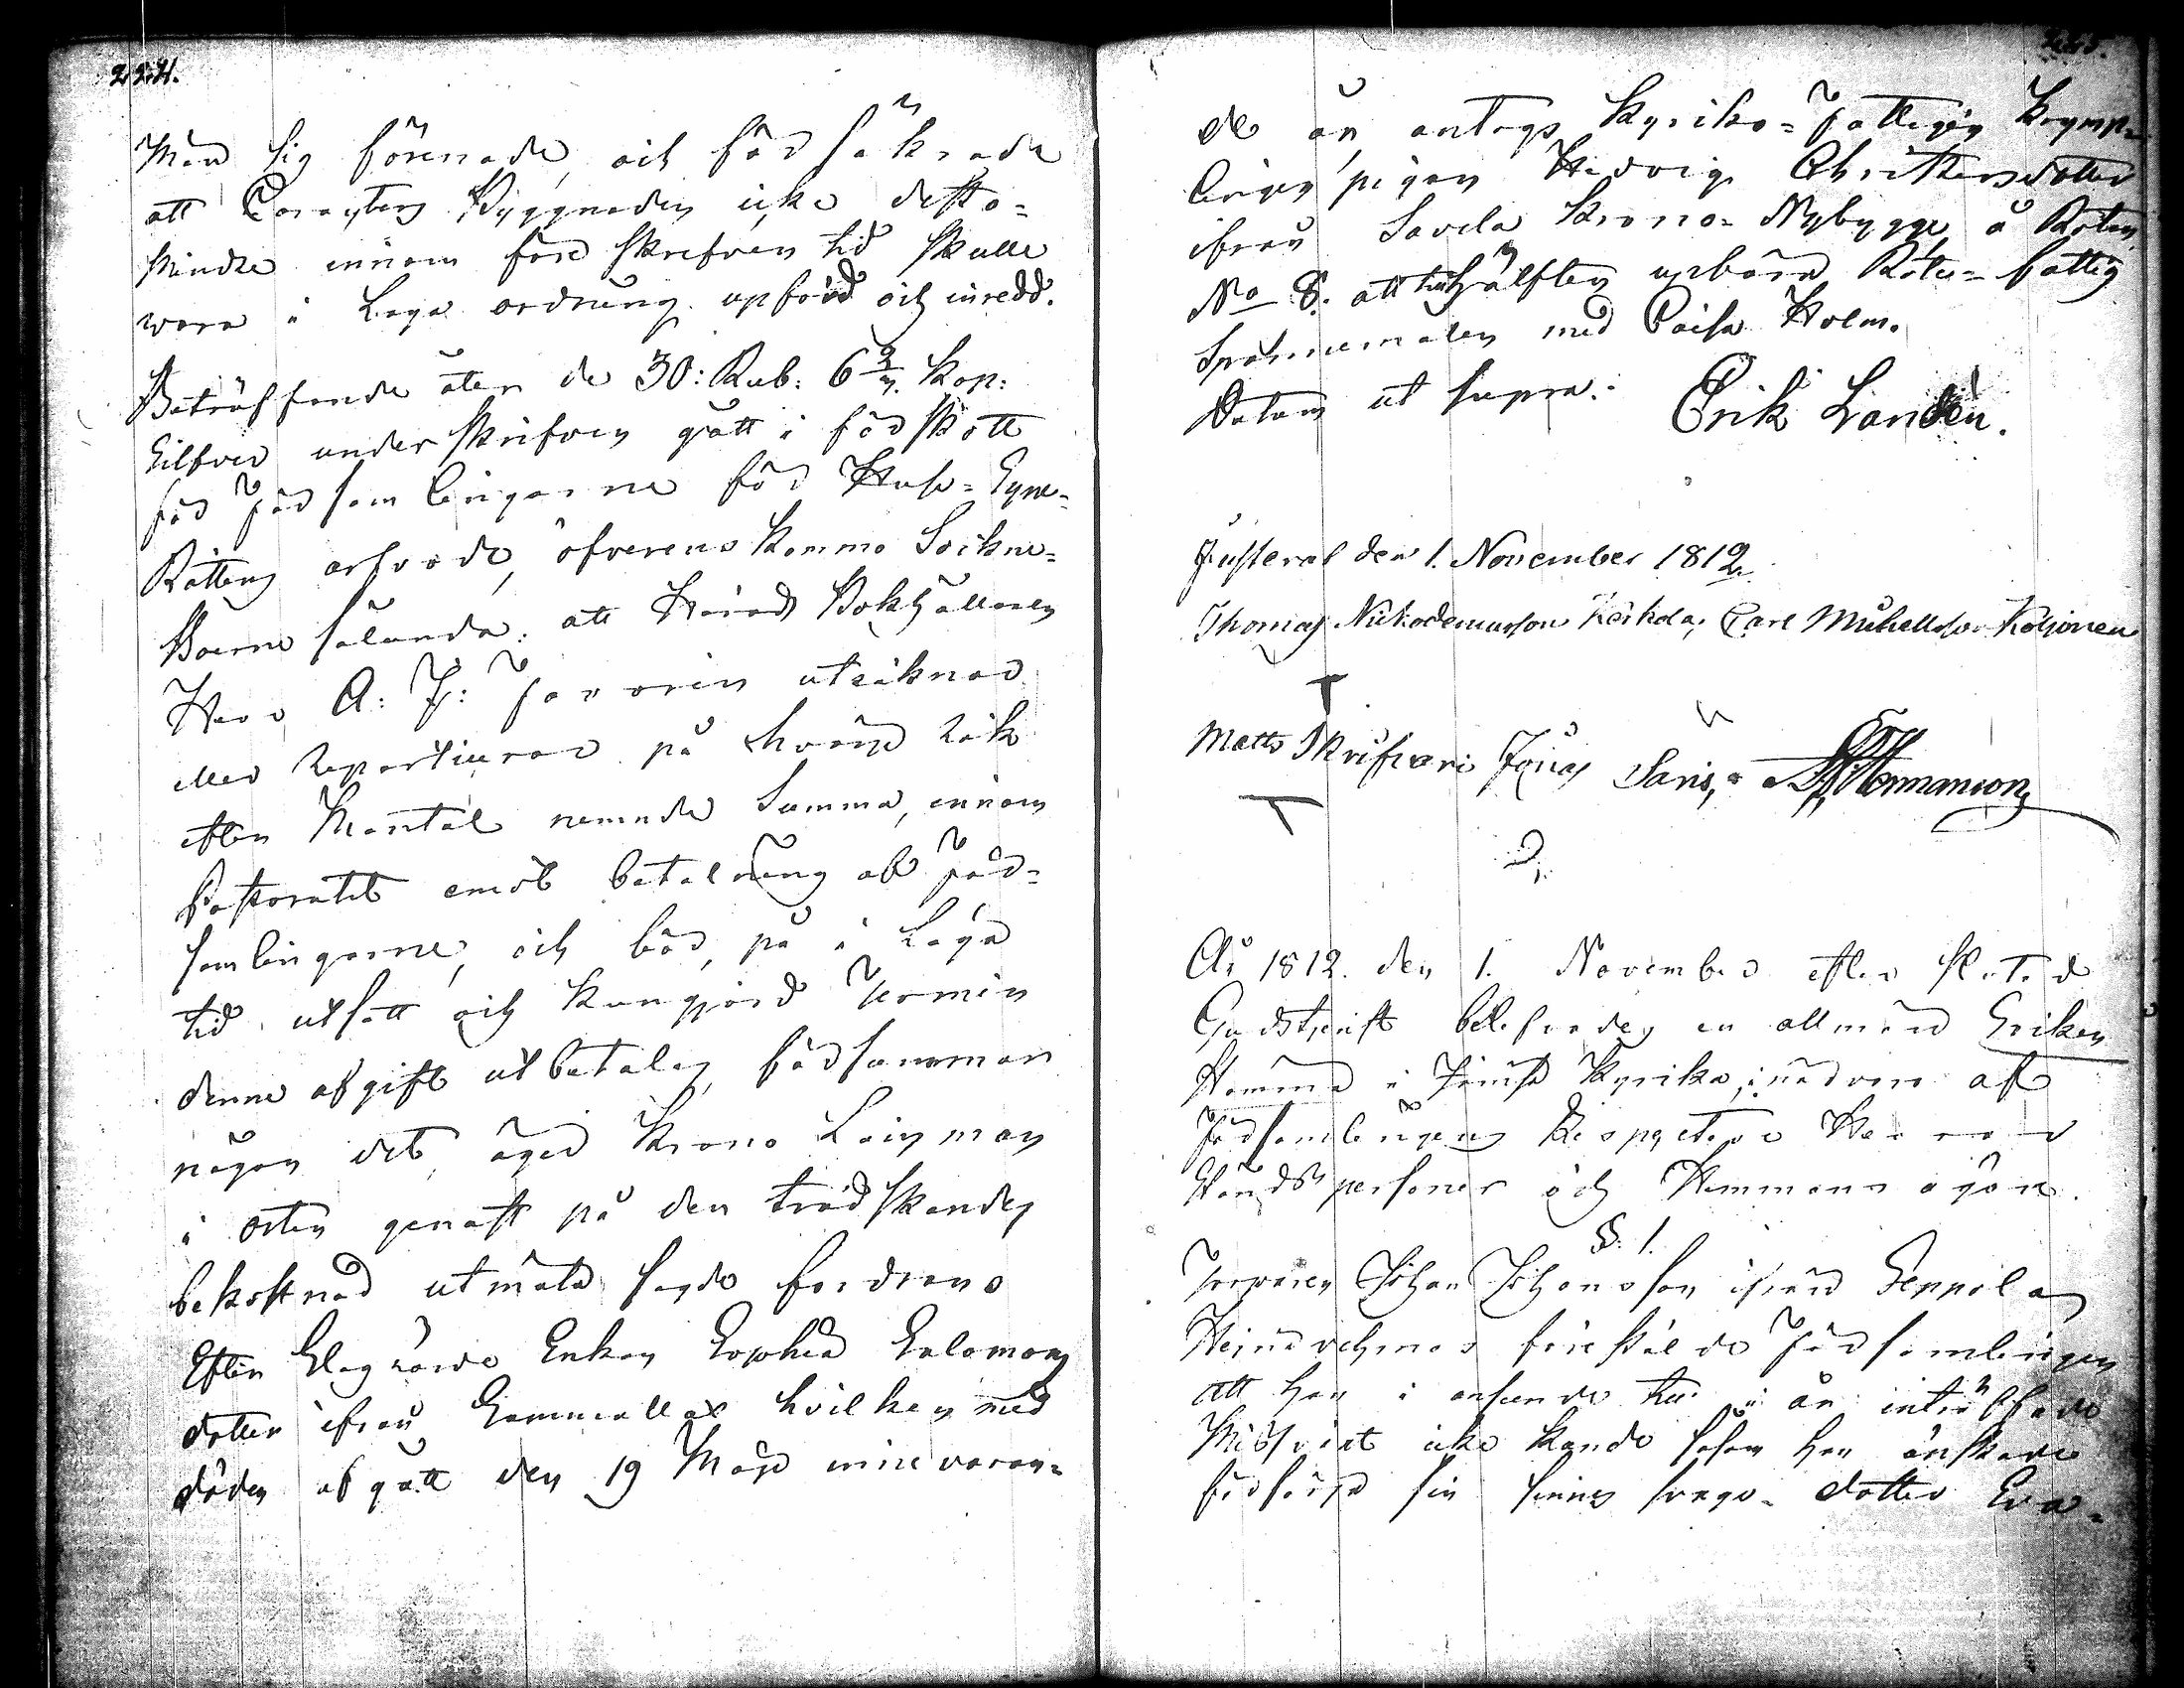 224.
Män sig förenade, och försäkrade
att Byggnaden icke desto-
mindre innom före skrefven tid skulle
wara i Laga ordning upförd och inredd.
Beträffande åter de 30: Rub: 6 2/7 Kop:
Silfver underskrifven gått i förskott
för Församlingarne för Husesyns-
Rättens arfvode, öfverens kommo Sockne-
Boerne sålunda: att Härads Bokhållaren
Herr A: F: uträknar
eller repartierar på hvarje rök
efter Mantal nemnde Summa, innom
Pastoratet emot betalning af För-
samlingarne, och bör, på i Laga
tid utsatt och kungjord Termin
denne afgift utbetalas, försummar
någon det, äger Krono Länsman
i orten genast på den tredskandes
bekostnad utmäta sagde fordran.
Efter Enkan Sophia Salomons
dotter ifrån hvilken med
döden afgått den 19 Maji innevaran-
225.
de år, antogs Kyrko-Fattigen Krymp-
lingen pigan Hedvig Christersdotter
ifrån Savela Krono-Nybygge å Roten
No 8. att till hälften upbära Rote-fattig
Spannemålen med Caisa Holm.
Datum ut supra.
Erik Landén.
Justerat den 1. November 1812.
Thomas Nickodemusson Carl Michelsson
Matts Skrifvari Jonas Saris, Hermanson
År 1812. den 1. November efter slutad
Gudstjenst belefvades en allmän Sockne
Stämma i Kyrka, i närvaro af
Församlingens Respective Herrar
Ståndspersoner och Hemmans ägare.
§. 1.
Torparen Johan Johansson ifrån Seppälä
förestälde Församlingen
att han i anseende till i år inträffade
Missväxt icke kunde såsom han önskade
försörja sin sinnes svaga dotter Eva